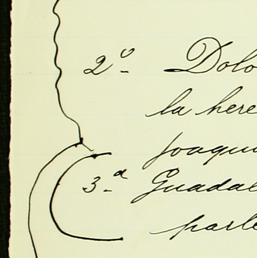 2º Dolo
la here
Joaqui
3ª Guadal
parte